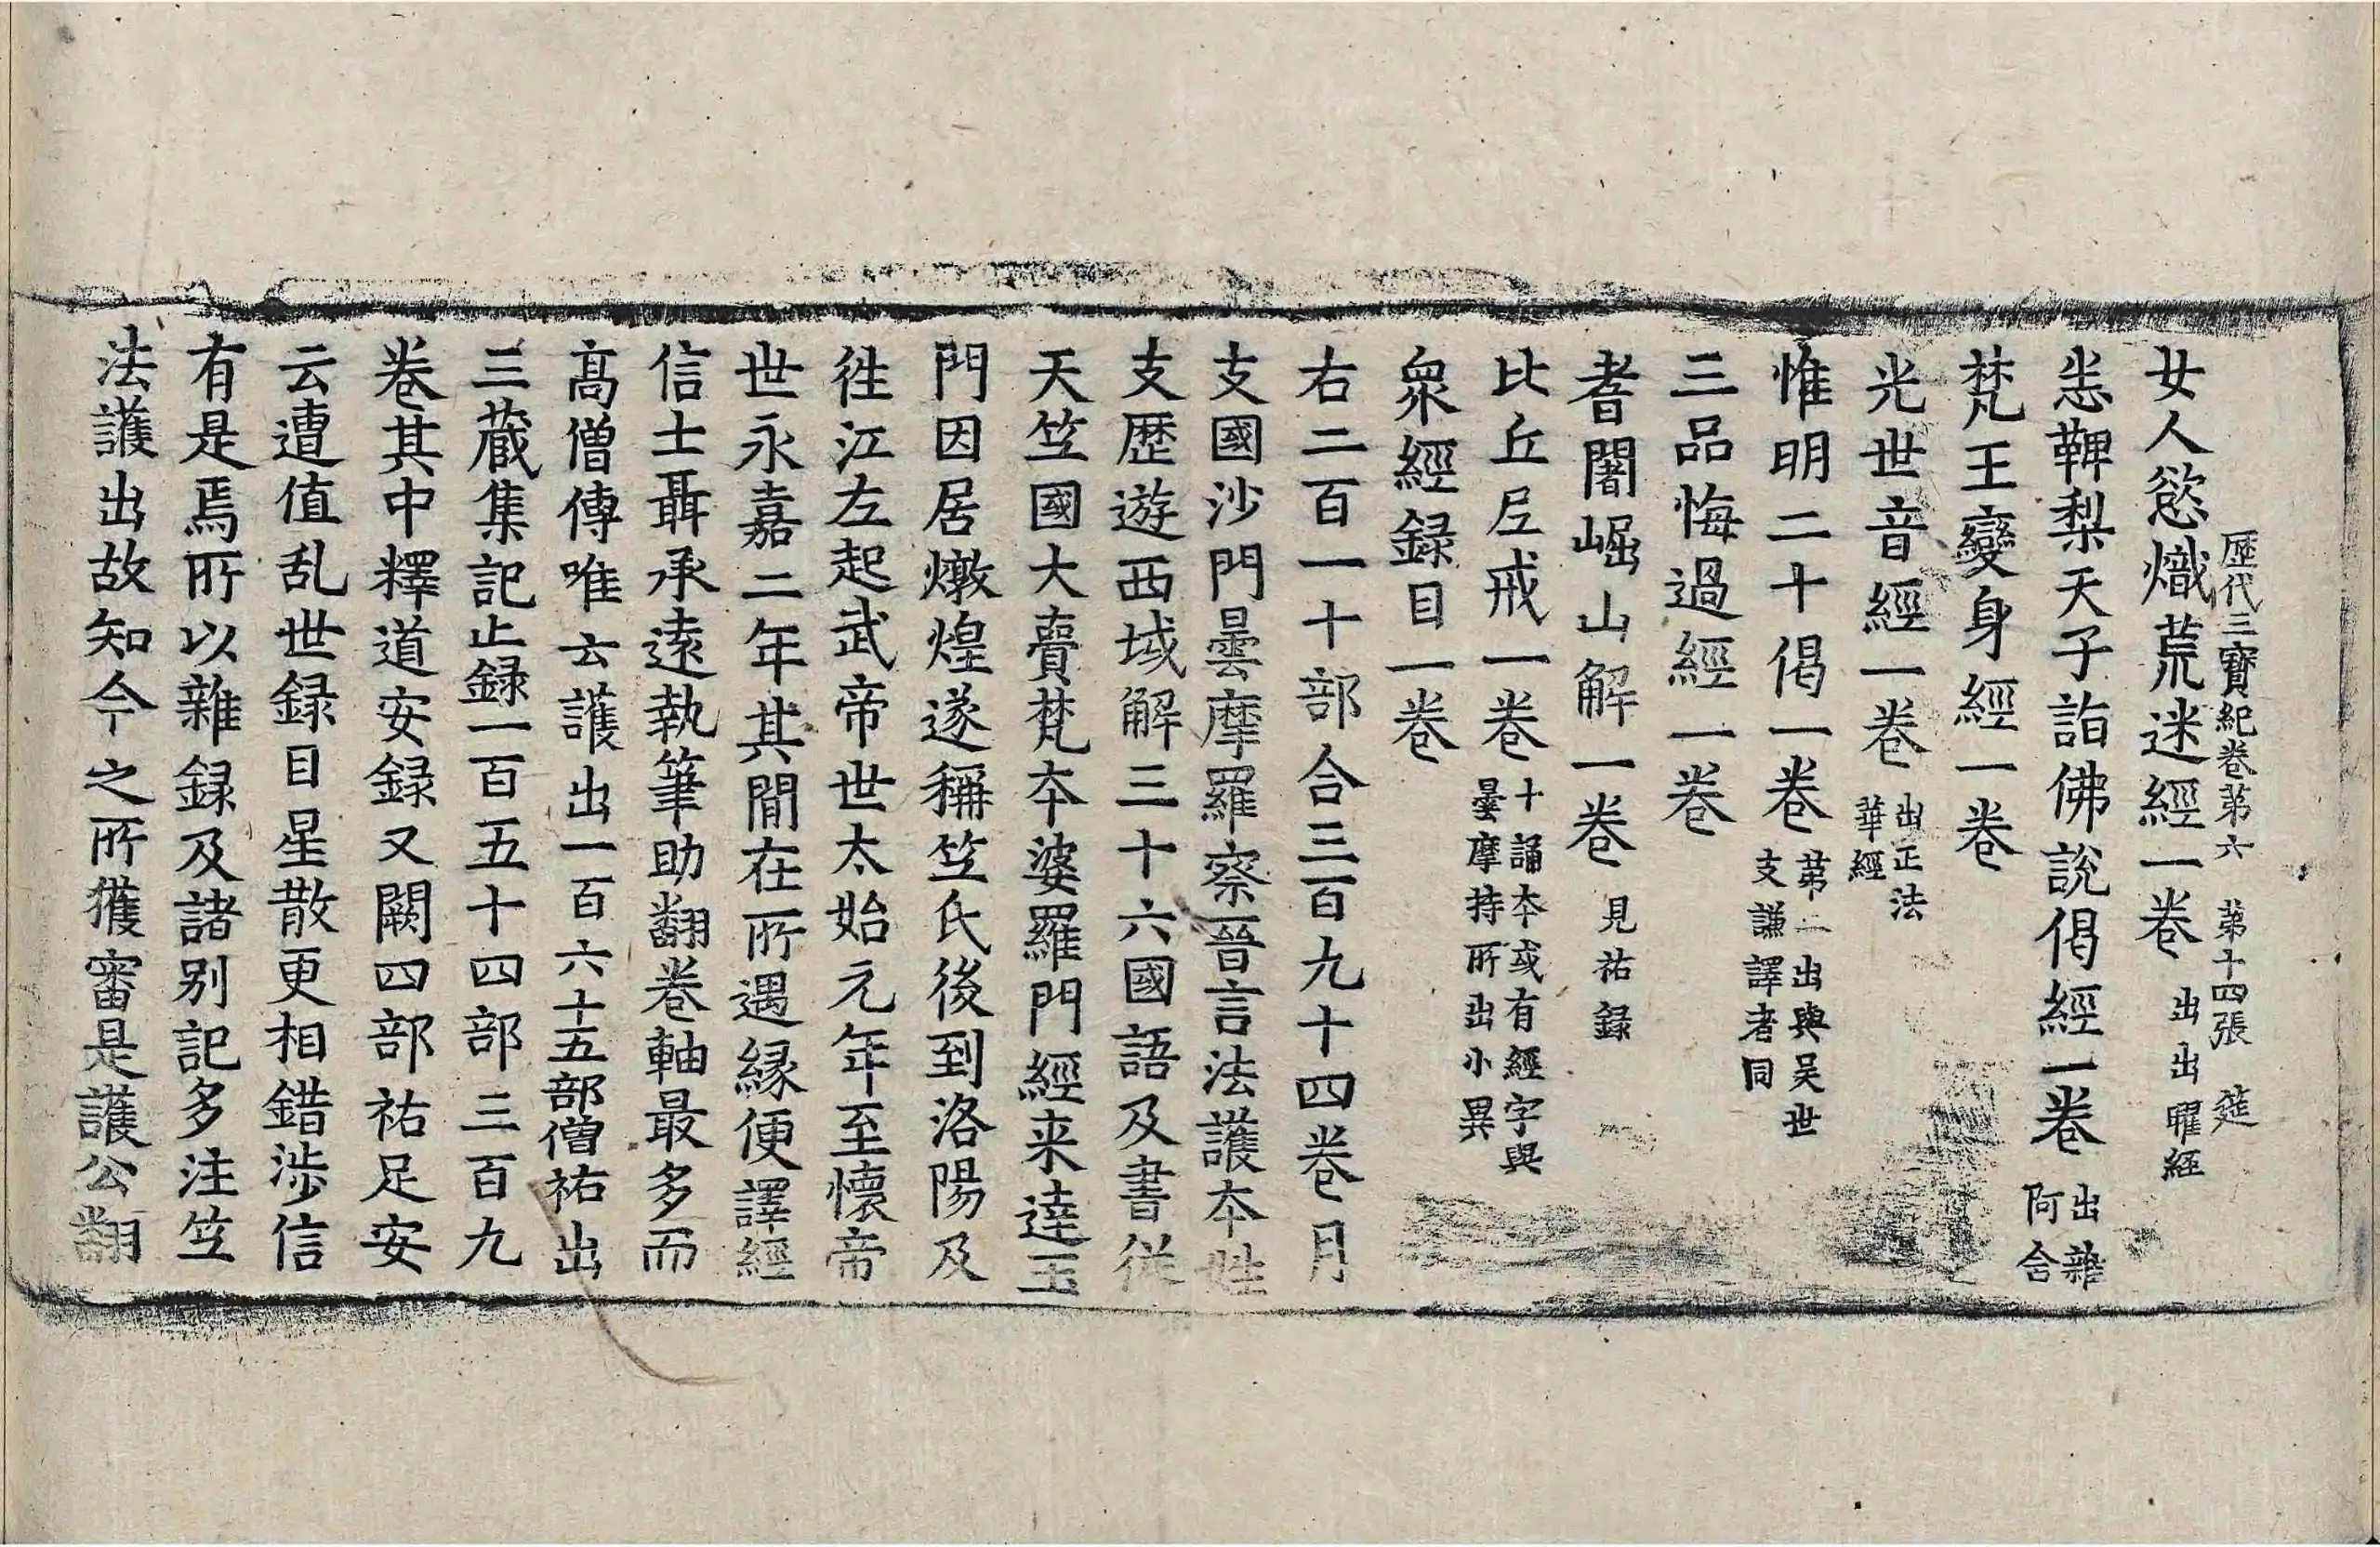 歷代三寶紀卷第六　第十四張　筵
女人慾熾荒迷經一卷 出出曜經
恙鞞梨天子詣佛說偈經一卷 出雜阿含
梵王變身經一卷
光世音經一卷 出正法華經
惟明二十偈一卷 苐二出與吴世支謙譯者同
三品悔過經一卷
耆闍崛山解一卷 見祐録
比丘尼戒一卷 十誦夲或有經字與曇摩持所出小異
衆經録目一卷
右二百一十部合三百九十四卷月
支國沙門曇摩羅察晉言法護夲姓
支歷遊西域解三十六國語及書從
天竺國大賷梵夲婆羅門經来達玉
門因居燉煌遂稱竺氏後到洛陽及
徃江左起武帝世太始元年至懷帝
世永嘉二年其間在所遇縁便譯經
信士聶承遠執筆助翻卷軸最多而
髙僧傳唯云護出一百六十五部僧祐出
三藏集記止録一百五十四部三百九
卷其中釋道安録又闕四部祐足安
云遭值乱世録目星散更相錯涉信
有是焉所以雜録及諸别記多注竺
法護出故知今之所獲審是護公翻